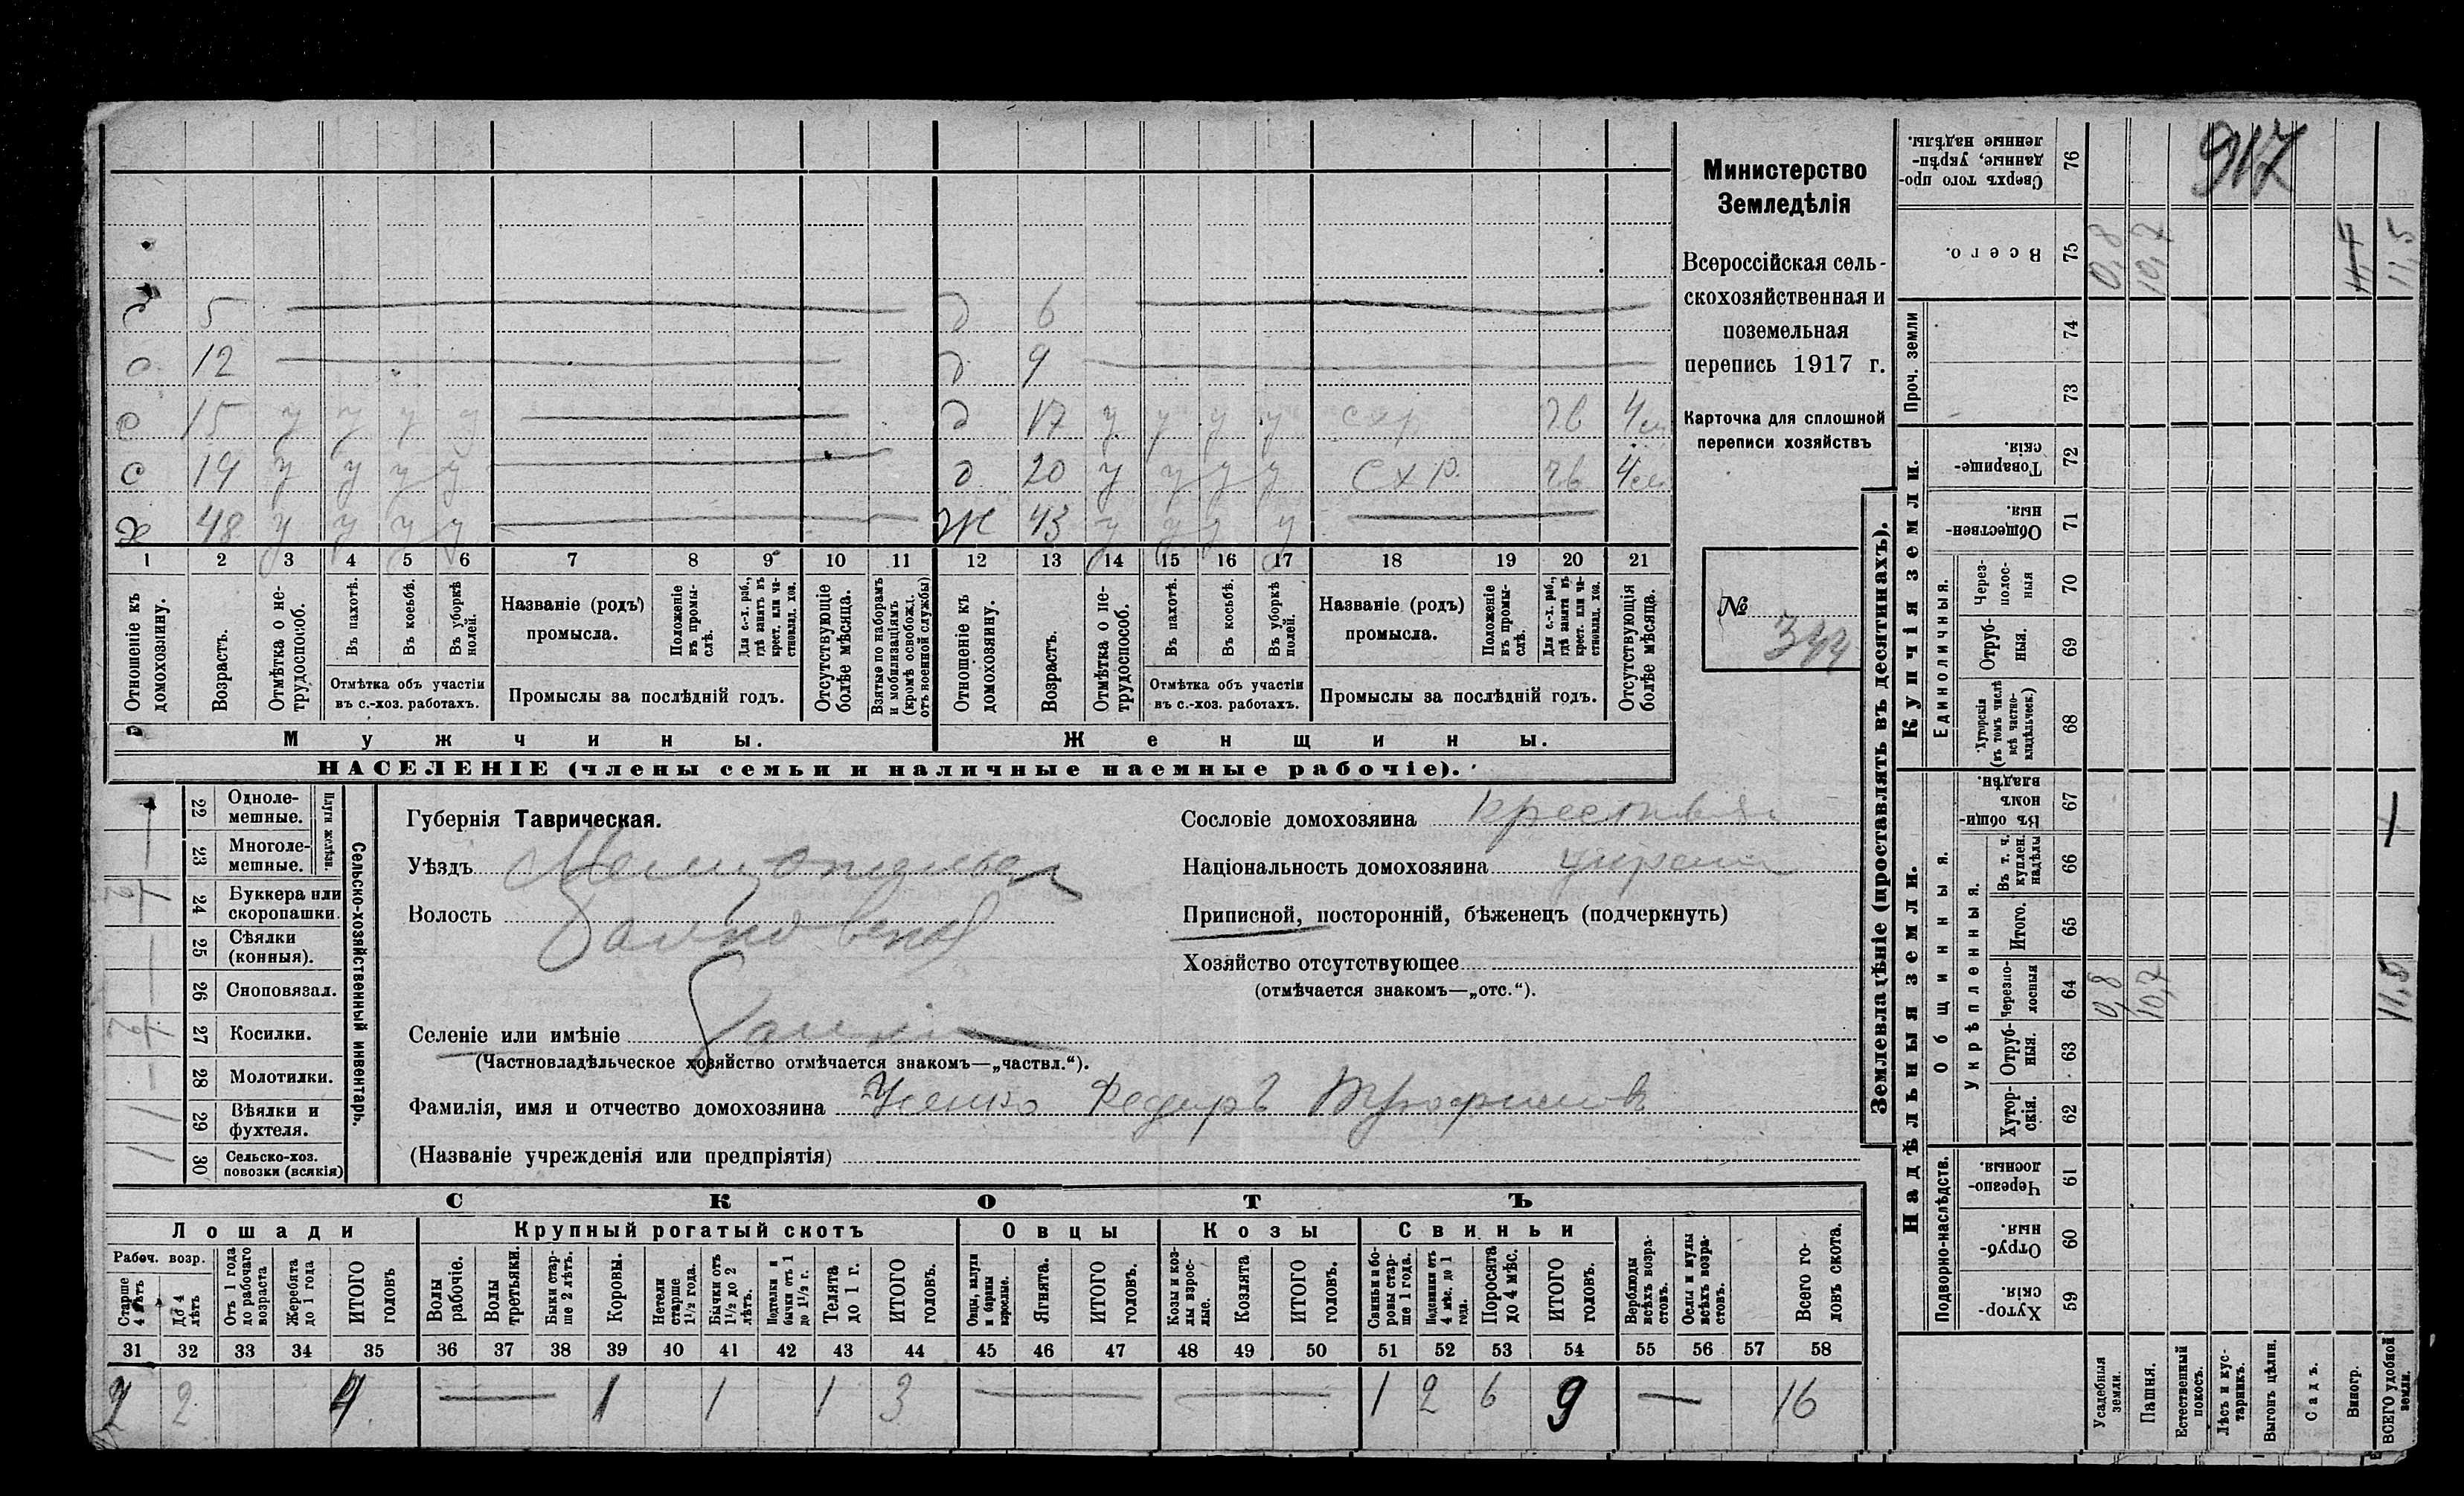 917
Министерство
Земледѣлія
Всероссійская сель-
скохозяйственная и
поземельная
перепись 1917 г.
Карточка для сплошной
переписи хозяйствъ
№ 344
5
д 6
12
д 9
с 15 у у у у
д 17 у у у у схр чв 4
с 19 у у у у
д 20 у у у у схр. чв 4
х 48 у у у у
ж 43 у у у у
1 2 3 4 5 6 7 8 9 10 11 12 13 14 15 16 17 18 19 20 21
Отношеніе къ домохозяину.
Возрастъ.
Отмѣтка о не-трудоспособ.
Въ пахотѣ.
Въ косьбѣ.
Въ уборкѣ полей.
Отмѣтка объ участіи
въ с.-хоз. работахъ.
Названіе (родъ)
промысла.
Положеніе въ промы-слѣ.
Для с.-х. раб., гдѣ занятъ въ крест. или ча-стновлад. хоз.
Промыслы за послѣдній годъ.
Отсутствующіе болѣе мѣсяца.
Взятые по наборамъ и мобилизаціямъ (кромѣ освобожд. отъ военной службы)
Отношеніе къ домохозяину.
Возрастъ.
Отмѣтка о не-трудоспособ.
Въ пахотѣ.
Въ косьбѣ.
Въ уборкѣ полей.
Отмѣтка объ участіи
въ с.-хоз. работахъ.
Названіе (родъ)
промысла.
Положеніе въ промы-слѣ.
Для с.-х. раб., гдѣ занята въ крест. или ча-стновлад. хоз.
Промыслы за послѣдній годъ.
Отсутствующія болѣе мѣсяца.
Мужчины.
Женщины.
НАСЕЛЕНІЕ (члены семьи и наличные наемные рабочіе).
Сельско-хозяйственный инвентарь.
Плуги желѣзн.
22 Одноле-мешные.
23 Многоле-мешные.
24 Буккера или скоропашки.
25 Сѣялки (конныя).
26 Сноповязал.
27 Косилки.
28 Молотилки.
29 Вѣялки и фухтеля. 1
30 Сельско-хоз. повозки (всякія) 1
Губернія Таврическая.
Уѣздъ
Волость
Селеніе или имѣніе
(Частновладѣльческое хозяйство отмѣчается знакомъ—„частвл.“).
Фамилія, имя и отчество домохозяина Усенко Федоръ Трофимовъ
(Названіе учрежденія или предпріятія)
Сословіе домохозяина
Національность домохозяина
Приписной, посторонній, бѣженецъ (подчеркнуть)
Хозяйство отсутствующее
(отмѣчается знакомъ—„отс.“).
СКОТЪ
Лошади
Крупный рогатый скотъ
Овцы
Козы
Свиньи
Рабоч. возр.
Старше 4 лѣтъ
До 4 лѣтъ
Отъ 1 года до рабочаго возраста
Жеребята до 1 года
ИТОГО головъ
Волы рабочіе.
Волы третьяки.
Быки стар-ше 2 лѣтъ.
Коровы.
Нетели старше 1½ года.
Бычки отъ 1½ до 2 лѣтъ.
Подтелки и бычки отъ 1 до 1½ г.
Телята до 1 г.
ИТОГО головъ.
Овцы, валухи и бараны взрослые.
Ягнята.
ИТОГО головъ.
Козы и коз-лы взрос-лые.
Козлята
ИТОГО головъ.
Свиньи и бо-ровы стар-ше 1 года.
Подсвинки отъ 4 мѣс. до 1 года.
Поросята до 4 мѣс.
ИТОГО головъ.
Верблюды всѣхъ возра-стовъ.
Ослы и мулы всѣхъ возра-стовъ.
Всего го-ловъ скота.
31 32 33 34 35 36 37 38 39 40 41 42 43 44 45 46 47 48 49 50 51 52 53 54 55 56 57 58
2 2 4 1 1 1 3 1 2 6 9 16
Землевладѣніе (проставлять въ десятинахъ).
Надѣльныя земли.
Купчія земли.
Подворно-наслѣдств.
Общинныя.
Укрѣпленныя.
Единоличныя.
Проч. земли
59 Хутор-скія.
60 Отруб-ныя.
61 Черезпо-лосныя.
62 Хутор-скія.
63 Отруб-ныя.
64 Черезпо-лосныя
65 Итого.
66 Въ т. ч. куплен. надѣлы
67 Въ общин-номъ владѣн.
68 Хуторскія (въ томъ числѣ всѣ частно-владѣльческ.)
69 Отруб-ныя.
70 Через-полос-ныя
71 Обществен-ныя.
72 Товарище-скія.
73
74
75 Всего.
76 Сверхъ того про-данные, укрѣп-ленные надѣлы.
Усадебныя земли. 0,8 0,8
Пашня. 10,7 10,7
Естественный покосъ.
Лѣсъ и кус-тарникъ.
Выгонъ цѣлин.
Садъ.
Виногр.
ВСЕГО удобной земли. 11,5 11,5